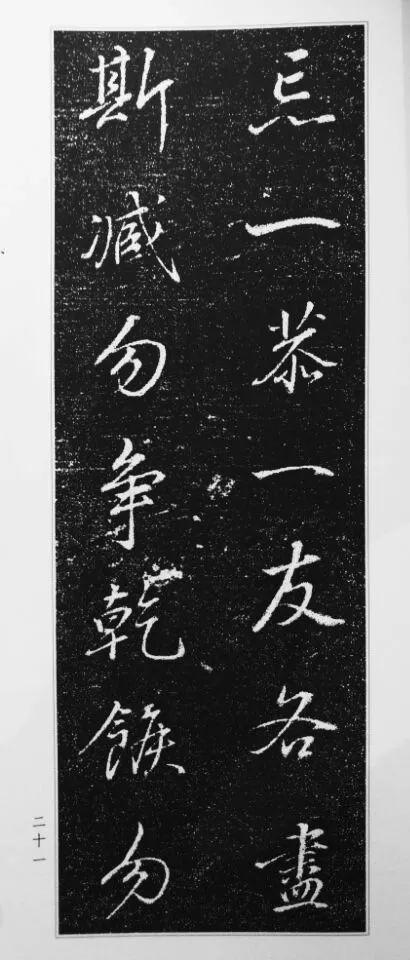 忘一恭一友各盡
斯減勿爭乾餱勿
二十一